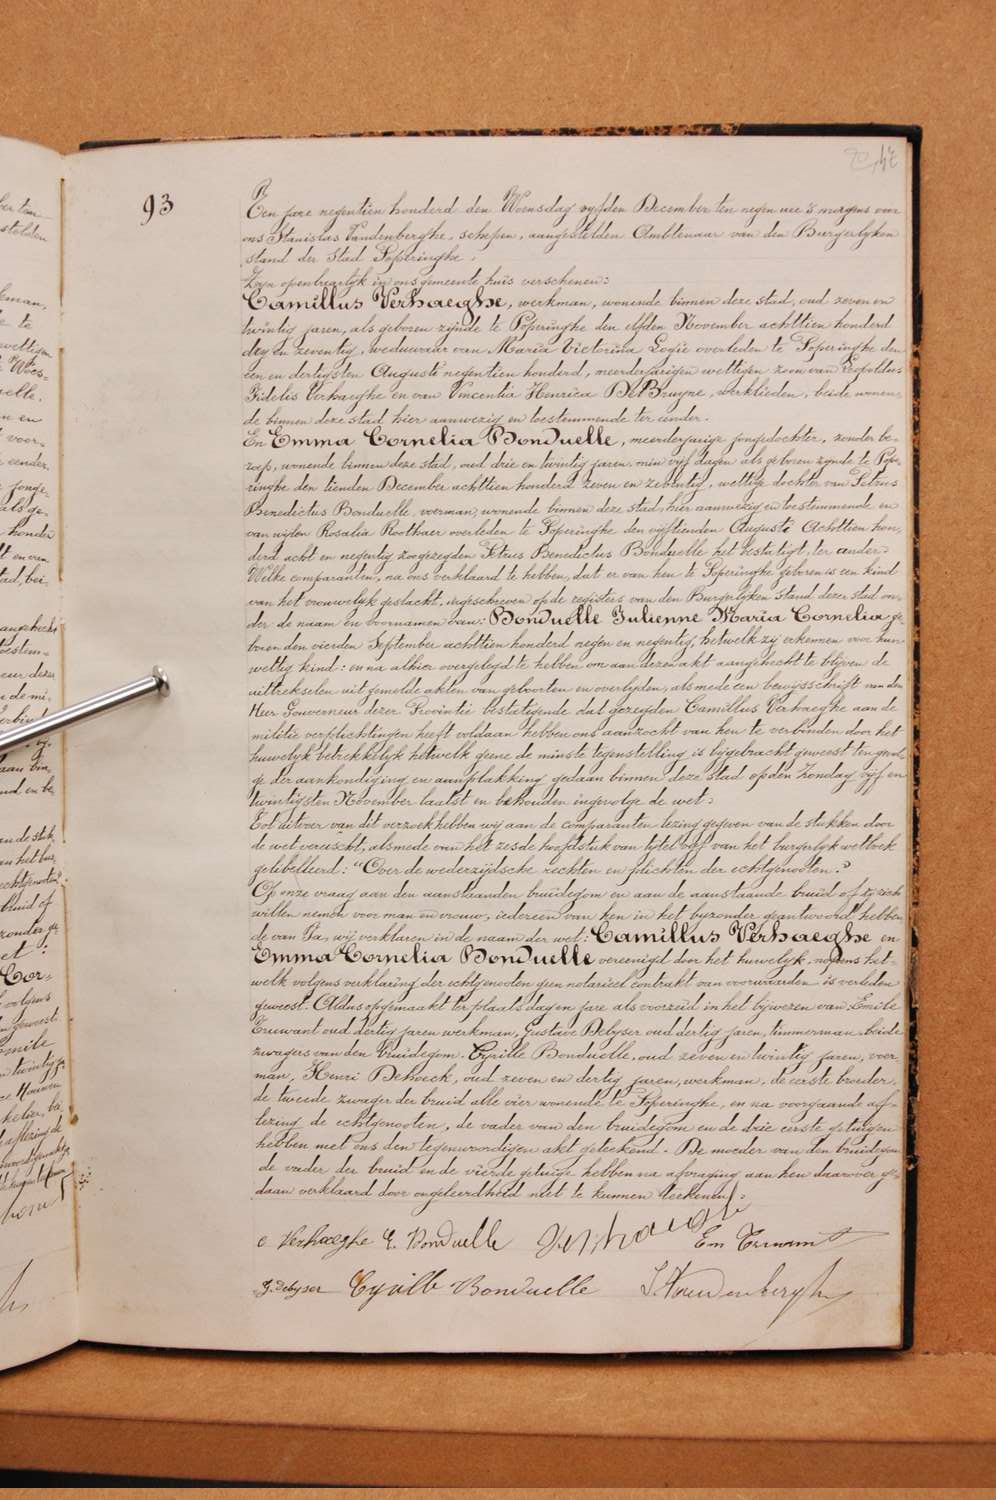 93
Een jare negentien honderd den Woensdag vyfden December ten negen ure 's morgens voor
ons Stanislas Vandenberghe, schepen, aangestelden Ambtenaar van den Burgerlyken
stand der stad Poperinghe.
Zyn openbaarlyk in ons gemeente huis verschenen:
Camillus Verhaeghe, werkman, wonende binnen deze stad, oud zeven en
twintig jaren, als geboren zynde te Poperinghe den elfden November achttien honderd
dry en zeventig, weduwaar van Maria Victorina Logie overleden te Poperinghe den
een en dertigsten Augusti negentien honderd, meerderjarigen wettigen zoon van Leopoldus
Fidelis Verhaeghe en van Vincentia Henrica De Bruyne, werklieden, beide wonen-
de binnen deze stad hier aanwezig en toestemmende ter eender.
En Emma Cornelia Bonduelle, meerderjarige jongedochter, zonder be-
roep, wonende binnen deze stad, oud drie en twintig jaren min vyf dagen als geboren zynde te Pope-
ringhe den tienden December achttien honderd zeven en zeventig, wettige dochter van Petrus
Benedictus Bonduelle, voerman, wonende binnen deze stad, hier aanwezig en toestemmende en
van wylen Rosalia Roothaer overleden te Poperinghe den vyftienden Augusti Achttien hon-
derd acht en negentig zoogezegden Petrus Benedictus Bonduelle het bestatigt, ter ander:
Welke comparanten, na ons verklaard te hebben, dat er van hen te Poperinghe geboren is een kind
van het vrouwelyk geslacht, ingeschreven op de registers van den Burgerlyken stand dezer stad on-
der de naam en voornamen van: Bonduelle Julienne Maria Cornelia ge-
boren den vierden September achttien honderd negen en negentig, hetwelk zij erkennen voor hun
wettig kind: en na alhier overgelegd te hebben om aan dezen akt aangehecht te blyven de
uittrekselen uit gemelde akten van geboorten en overlyden, alsmede een bewysschrift van den
Heer Gouverneur dezer Provintie bestatigende dat gezegden Camillus Verhaeghe aan de
militie verplichtingen heeft voldaan hebben ons aanzocht van hen te verbinden door het
huwelyk betrekkelyk hetwelk geene de minste tegenstelling is bygebracht geweest ten gevol-
ge der aankondiging en aanplakking gedaan binnen deze stad op den Zondag vyf en
twintigsten November laatst en behouden ingevolge de wet:
Tot uitvoer van dit verzoek hebben wij aan de comparanten lezing gegeven van de stukken door
de wet vereischt, alsmede van het zesde hoofdstuk van tytel vyf van het burgerlyk wetboek
getitelleerd: "Over de wederzijdsche rechten en plichten der echtgenooten."
Op onze vraag aan den aanstaanden bruidegom en aan de aanstaande bruid of zy zich
willen nemen voor man en vrouw, iedereen van hen in het byzonder geantwoord hebben-
de van Ja, wij verklaren in de naam der wet: Camillus Verhaeghe en
Emma Cornelia Bonduelle vereenigd door het huwelyk, nopens het-
welk volgens verklaring der echtgenooten geen notarieel contrakt van voorwaarden is verleden
geweest. Aldus opgemaakt ter plaats dag en jare als voorzeid in het bywezen van: Emile
Truwant oud dertig jaren werkman, Gustave Debyser oud dertig jaren, timmerman beide
zwagers van den bruidegom. Cyrille Bonduelle, oud zeven en twintig jaren, voer-
man, Henri Dehaeck, oud zeven en dertig jaren, werkman, de eerste broeder,
de tweede zwager der bruid alle vier wonende te Poperinghe, en na voorgaande af-
lezing de echtgenooten, de vader van den bruidegom en de drie eerste getuigen
hebben met ons den tegenwoordigen akt geteekend. De moeder van den bruidegom
de vader der bruid en de vierde getuige hebben na afvraging aan hen daarover ge-
daan verklaard door ongeleerdheid niet te kunnen teekenen:
C Verhaeghe E. Bonduelle Verhaeghe Em Truwant
G. Debyser Cyrille Bonduelle S. Vandenberghe